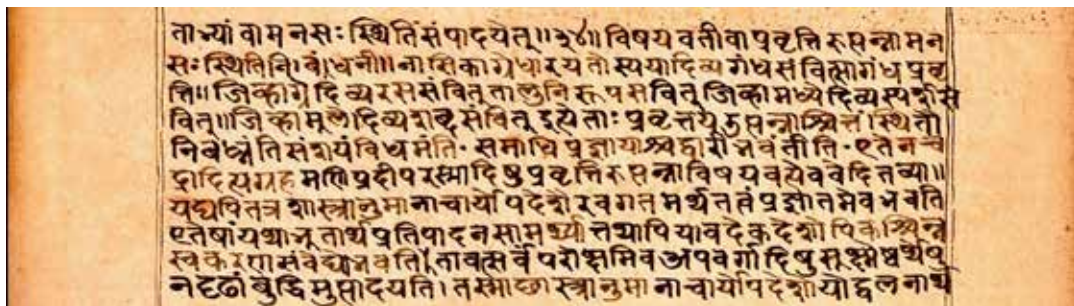 ताभ्यां वा मनसः स्थितिं संपादयेत्॥३४॥ विषयवती वा प्रवृत्तिरुत्पन्ना मन
सः स्थितिनिबंधनी॥ नासिकाग्रे धारयतोस्य या दिव्यगंधसंवित्सा गंधप्रवृ
त्तिः॥ जिव्हाग्रे दिव्यरससंवित् तालुनि रूपसंवित् जिव्हामध्ये दिव्यस्पर्शसं
वित्॥ जिव्हामूले दिव्यशब्दसंवित् इत्येताः प्रवृत्तय उत्पन्नाश्चित्तं स्थितौ
निबध्नंति संशयं विधमंति॰ समाधिप्रज्ञायाश्च द्वारीभवंतीति॰ एतेन चं
द्रादित्यग्रहमणिप्रदीपरत्नादिषु प्रवृत्तिरुत्पन्ना विषयवत्येव वेदितव्या॥
यद्यपि तत्र शास्त्रानुमानाचार्योपदेशैरवगतमर्थतत्वं प्रज्ञातमेव भवति
एतेषां यथाभूतार्थप्रतिपादनसामर्थ्यात् तथापि यावदेकदेशोपि कश्चिन्न
स्वकरणसंवेद्यो भवति तावत्सर्वं परोक्षमिव अपवर्गादिषु सूक्ष्मेष्वर्थेषु
न दृढां बुद्धिमुत्पादयति। तस्माच्छास्त्रानुमानाचार्योपदेशोपोद्वलनार्थ